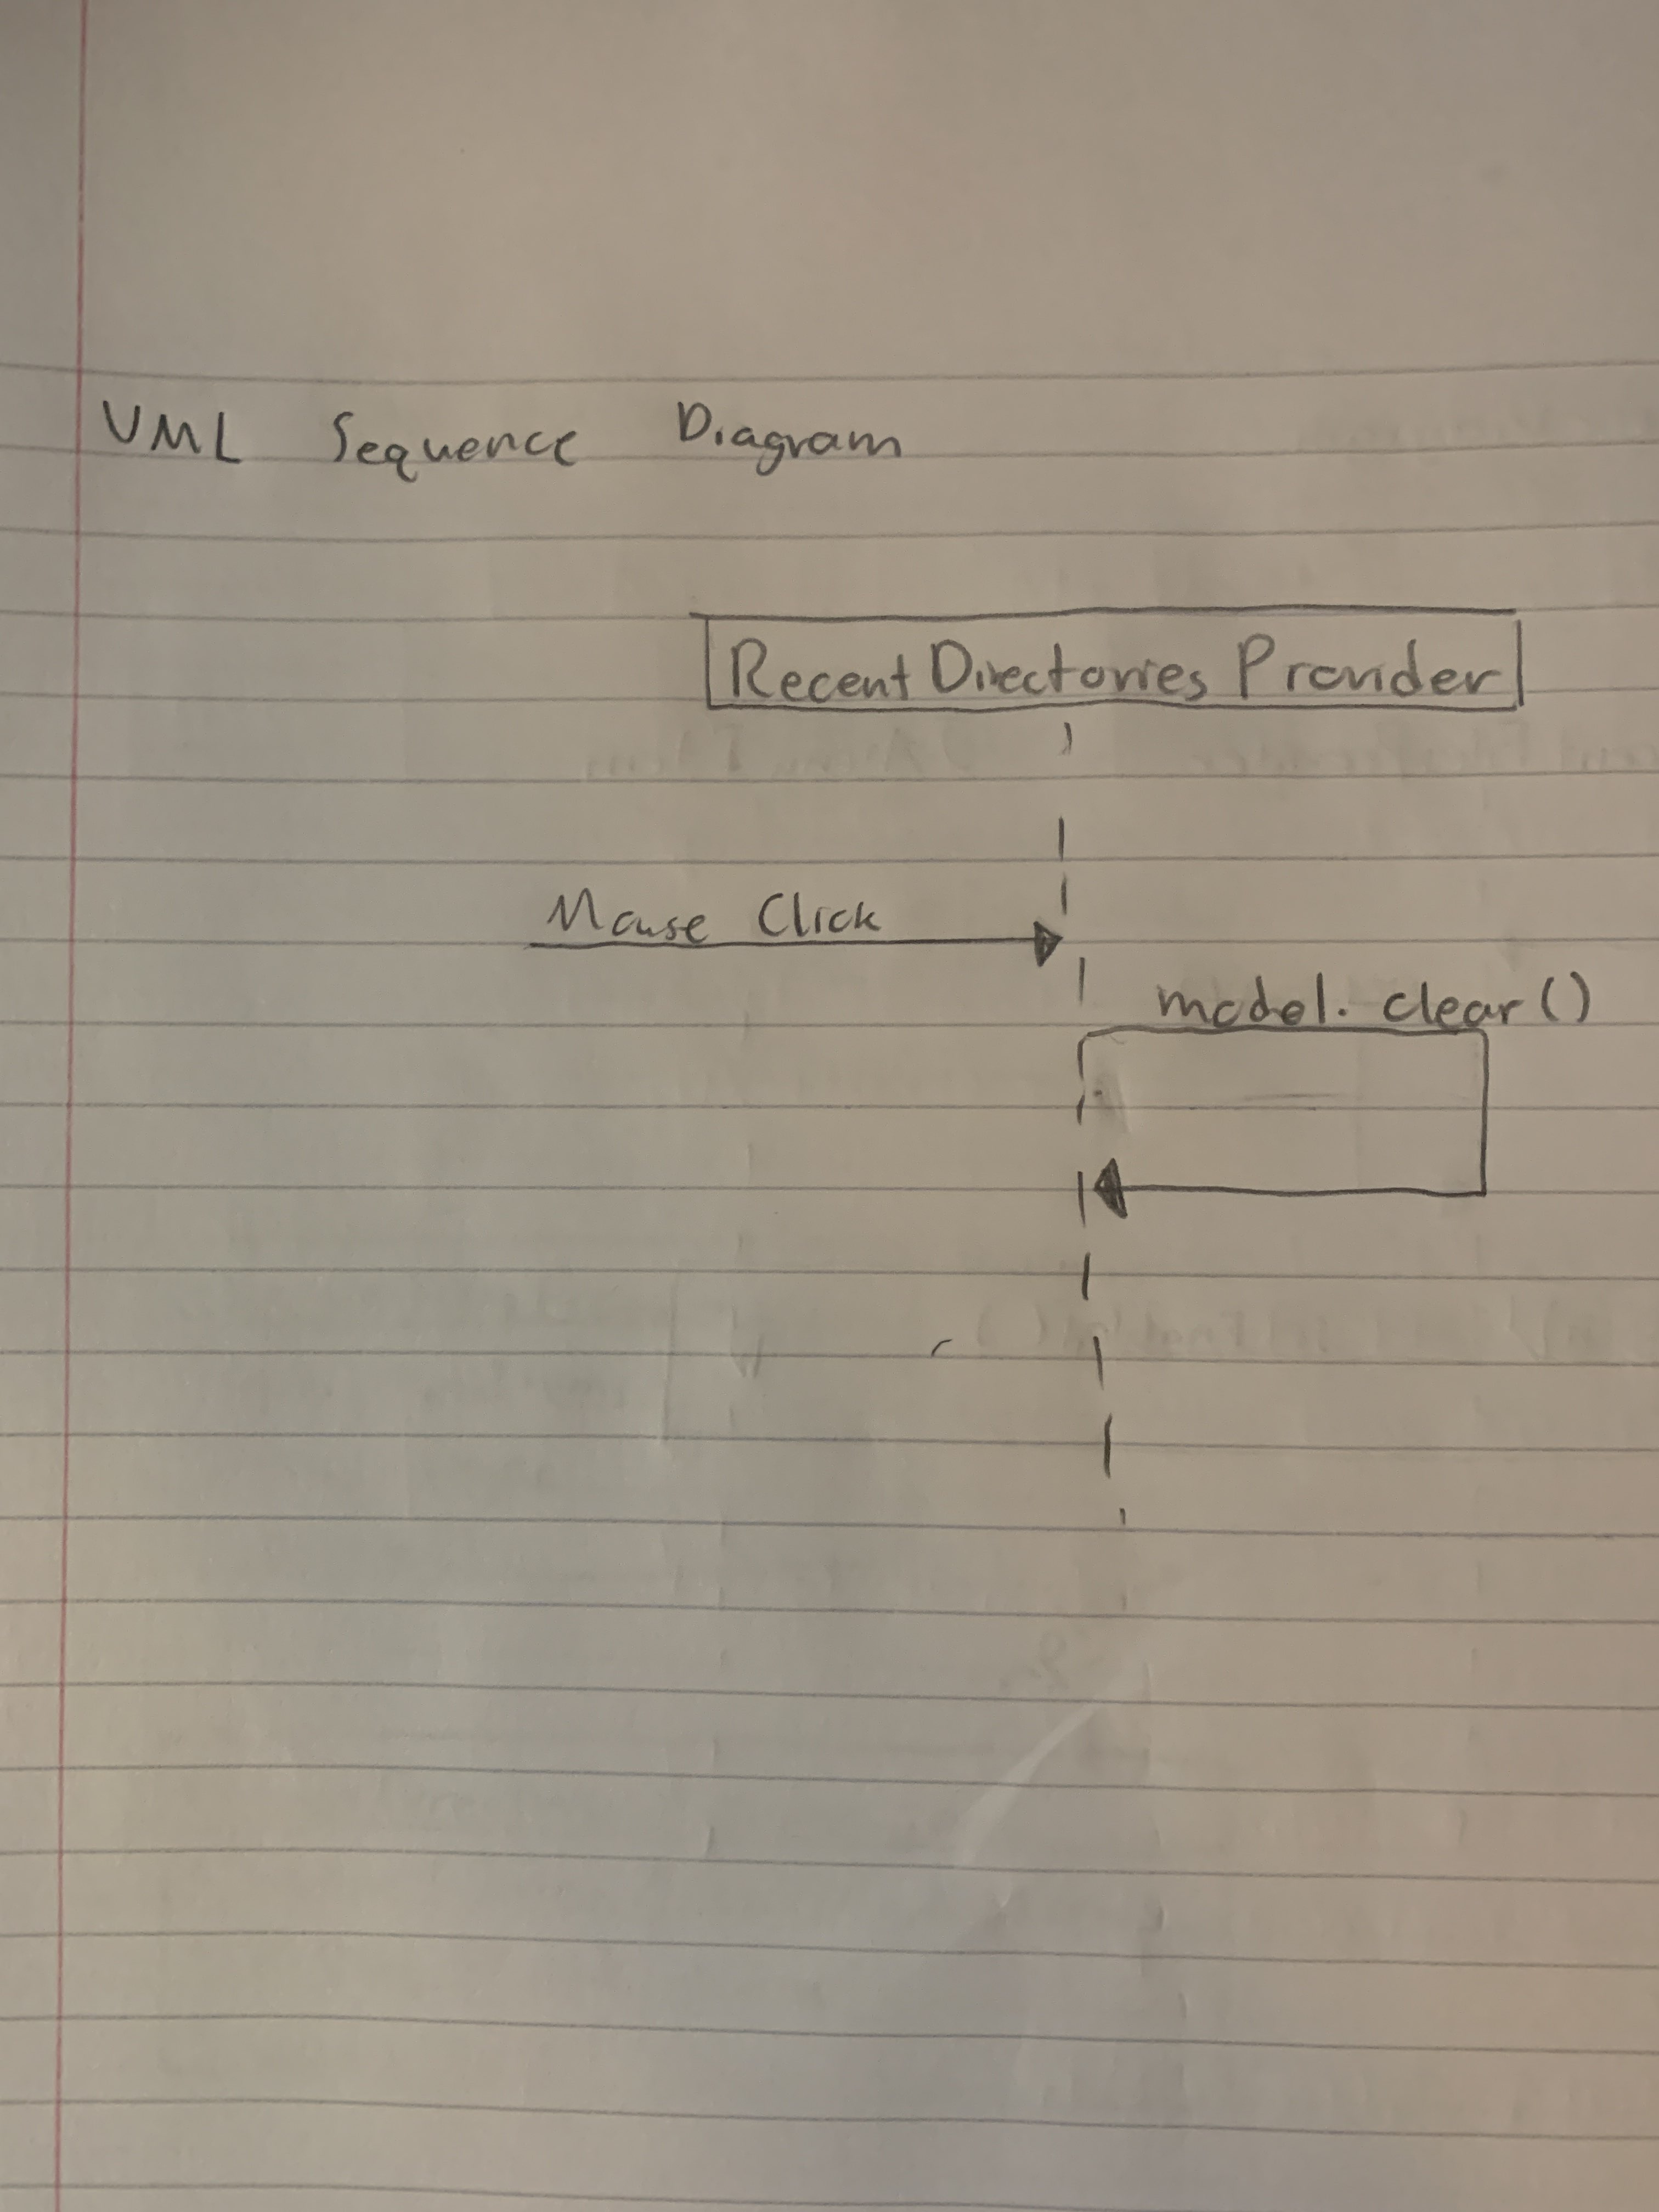 UML Sequence Diagram
Recent Directories Provider
Mouse Click
model. clear()